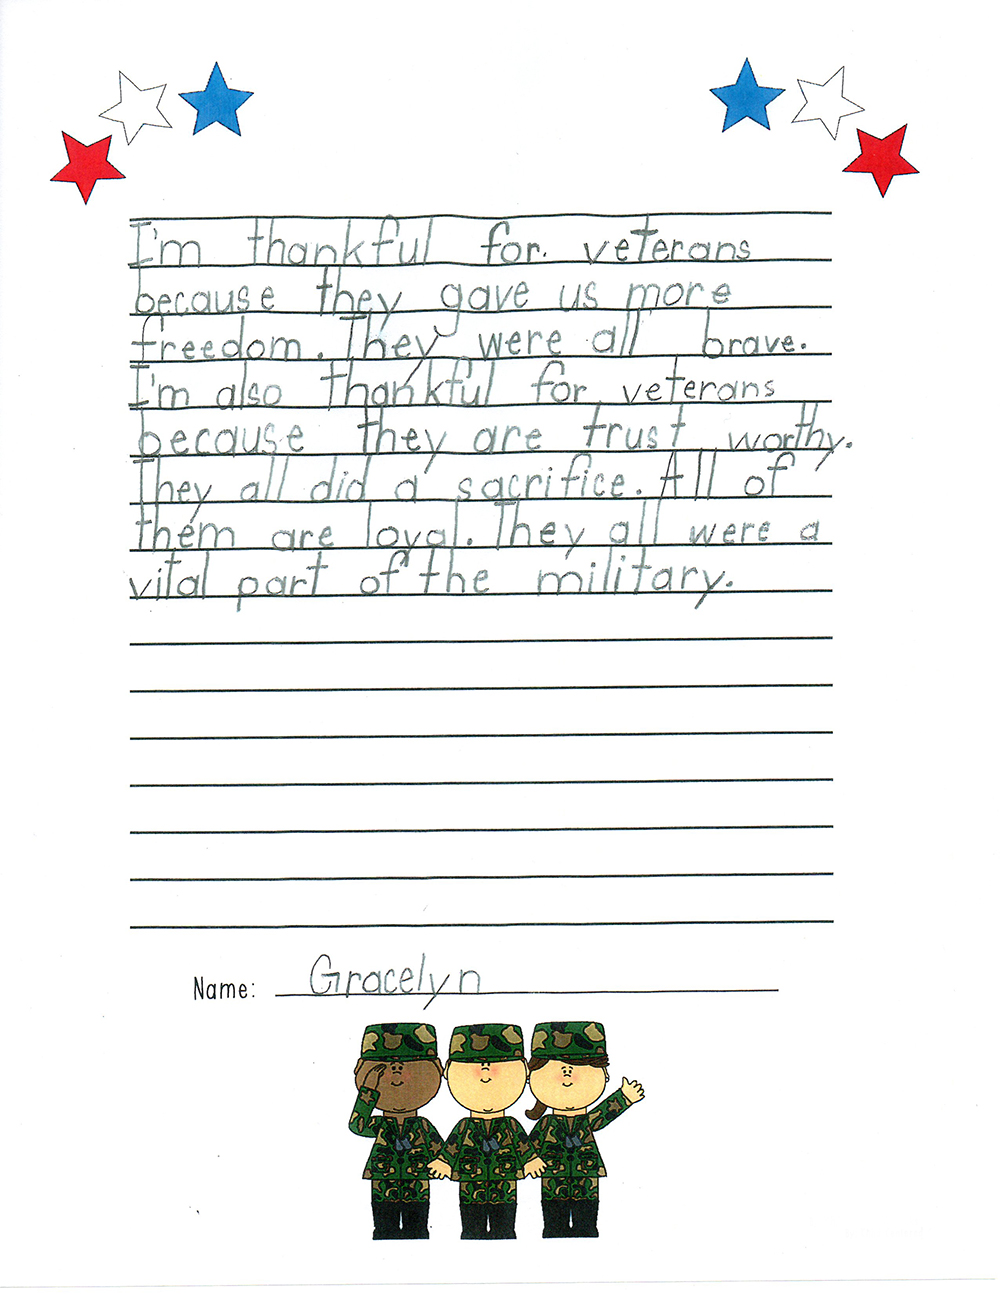 I'm thankful for veterans
because they gave us more
freedom. They were all brave.
I'm also thankful for veterans
because they are trust worthy.
They all did a sacrifice. All of
them are loyal. They all were a
vital part of the military.
Name: Gracelyn